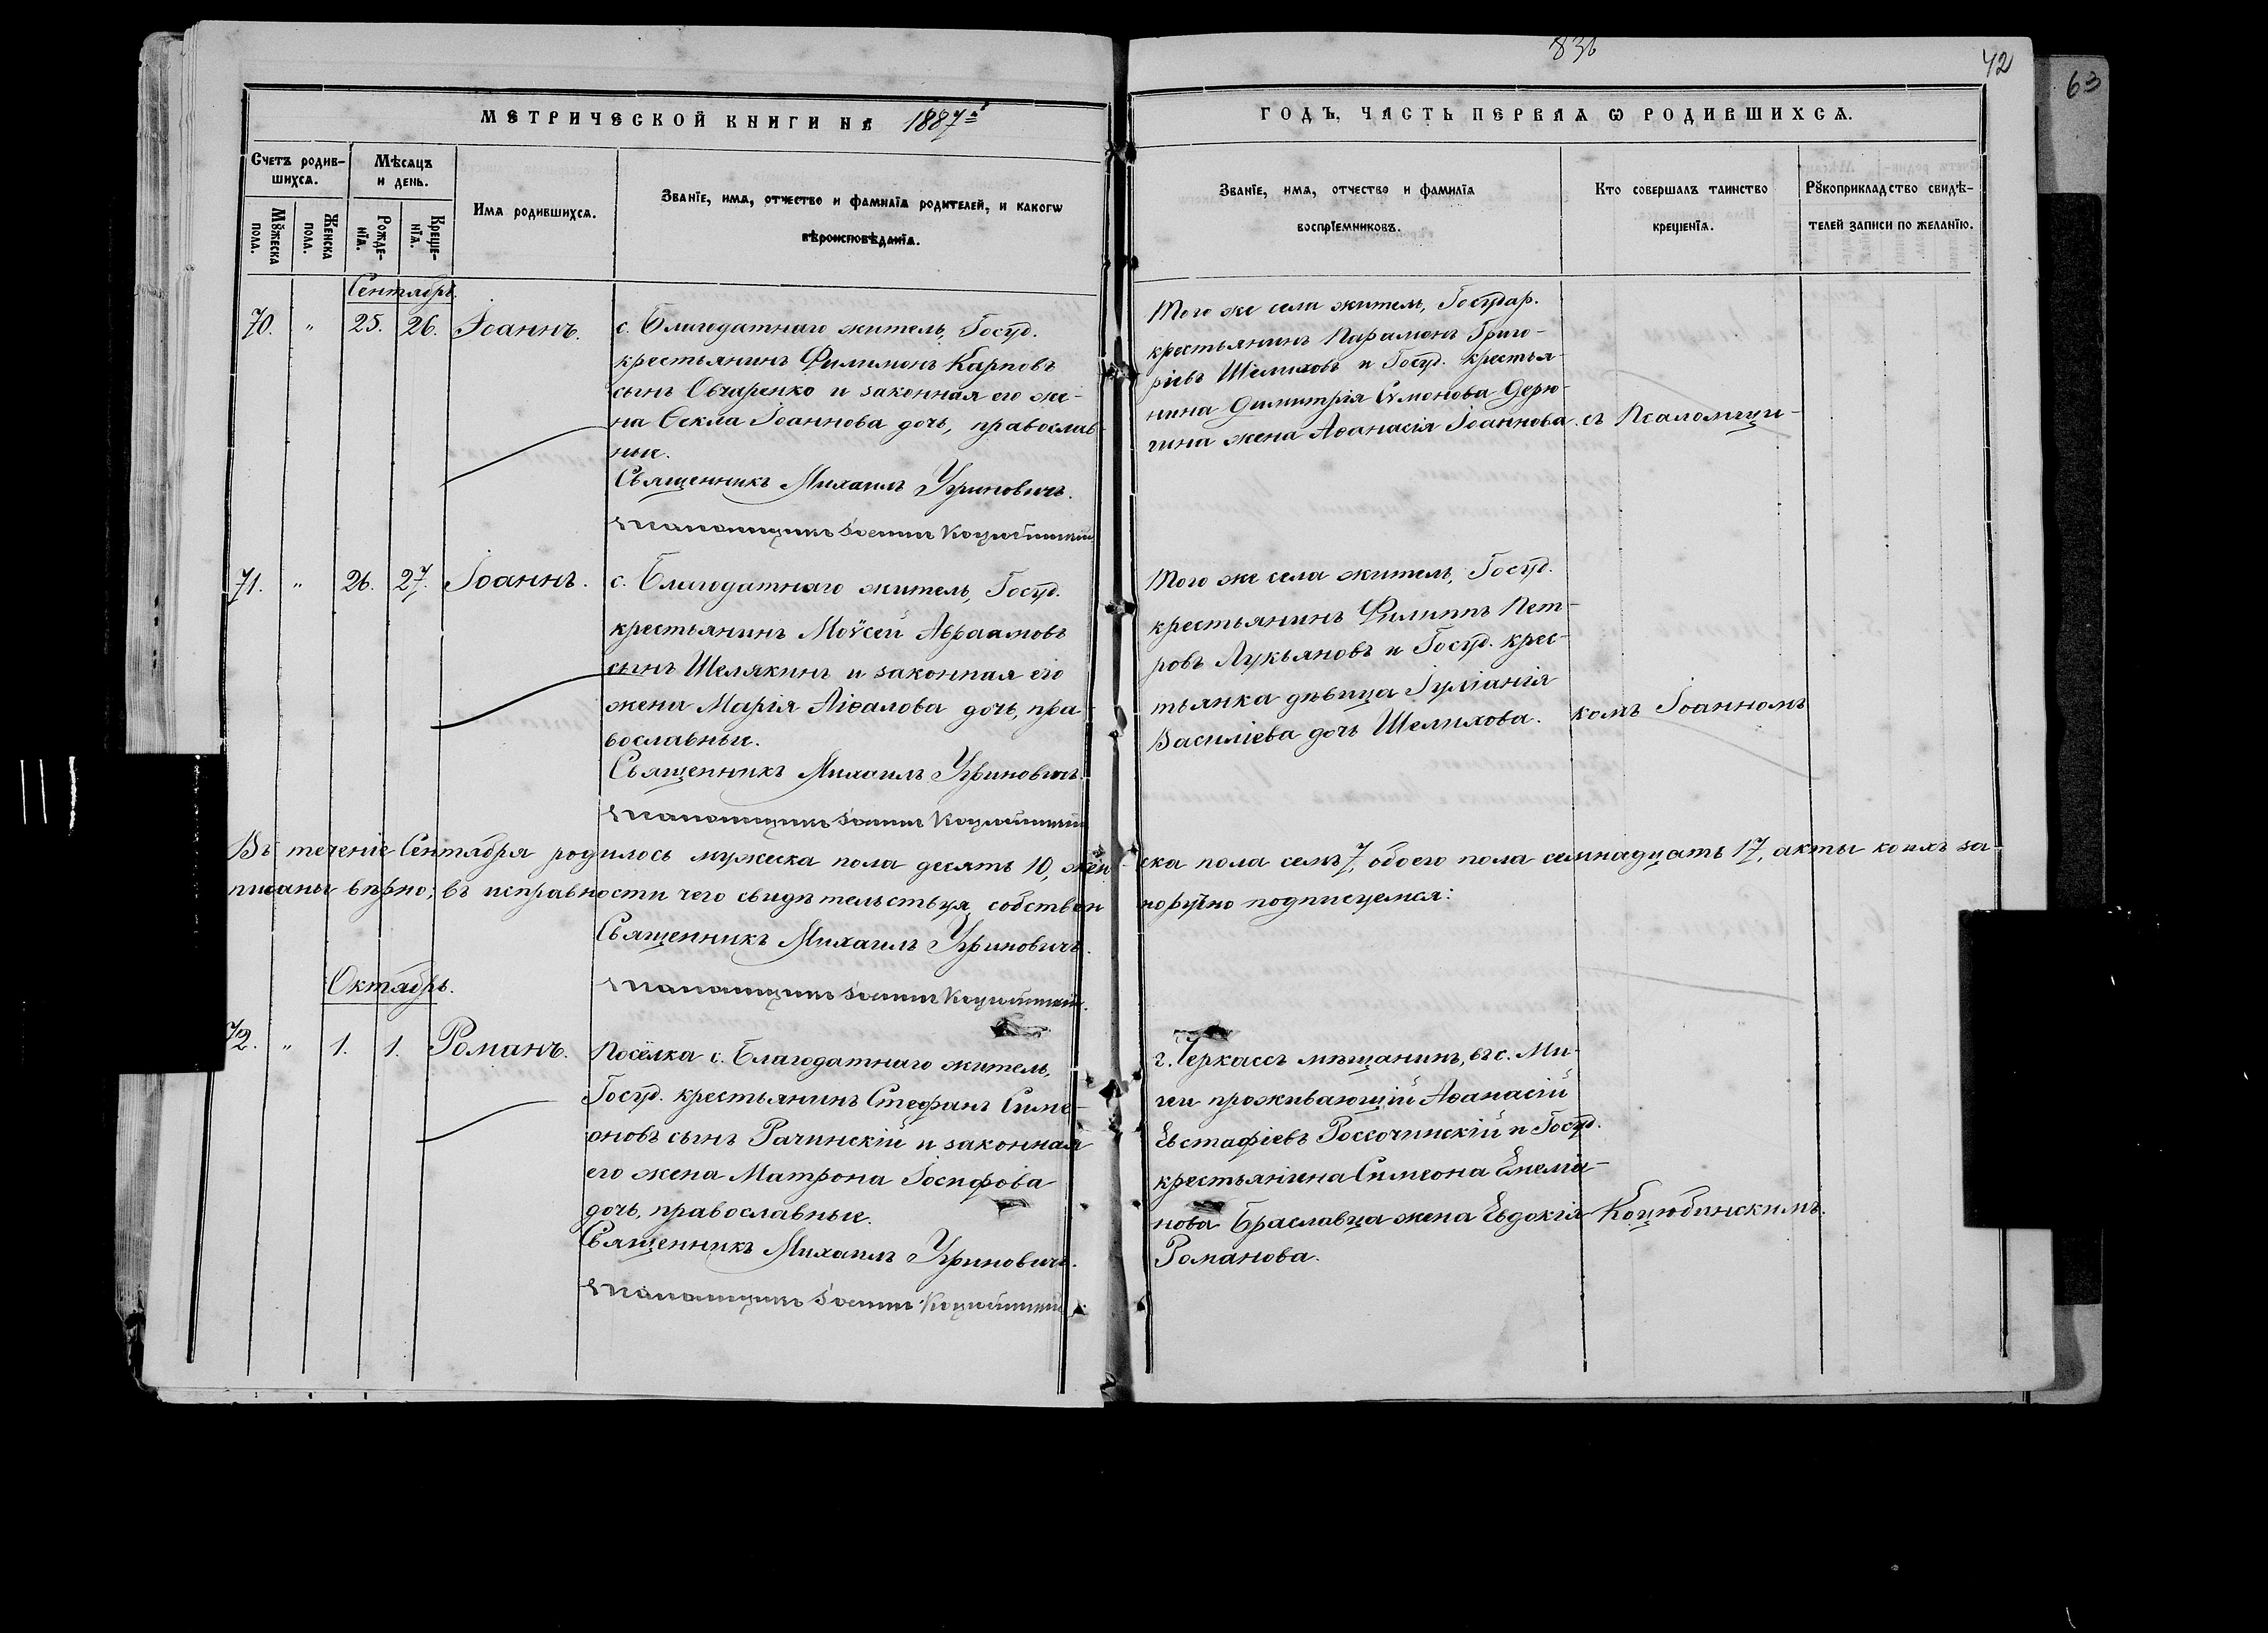 836
42
63
МЕТРИЧЕСКОЙ КНИГИ НА 1887й
ГОДЪ, ЧАСТЬ ПЕРВАѦ Ѡ РОДИВШИХСѦ.
Счетъ родив-
шихсѧ.
Мꙋжеска
пола.
Женска
пола.
Мѣсѧцъ
и день.
Рожде-
нїѧ.
Креще-
нїѧ.
Имѧ родившихсѧ.
Званїе, имѧ, отчество и фамилїѧ родителей, и какогѡ
вѣроисповѣданїѧ.
Званїе, имѧ, отчество и фамилїѧ
воспрїемниковъ.
Кто совершалъ таинство
крещенїѧ.
Рꙋкоприкладство свидѣ-
телей записи по желанїю.
Сентябрь.
70. " 25. 26. Іоаннъ.
с. Благодатнаго житель, Госуд.
крестьянинъ Филимонъ Карповъ
сынъ Овчаренко и законная его же-
на Ѳекла Іоаннова дочь, православ
ные.
Священникъ Михаилъ Угриновичъ.
Псаломщикъ Іоаннъ Коцюбинскій
Того же села житель, Государ.
крестьянинъ Парамонъ Григо-
ріевъ Шелиховъ и Госуд. крестья-
нина Димитрія Сѵмонова Дерю-
гина жена Аѳанасія Іоаннова.
съ Псаломщи-
71. " 26. 27. Іоаннъ.
с. Благодатнаго житель, Госуд.
крестьянинъ Моѵсей Авраамовъ
сынъ Шелякинъ и законная его
жена Марія Аіѳалова дочь, пра-
вославные.
Священникъ Михаилъ Угриновичъ.
Псаломщикъ Іоаннъ Коцюбинскій
Того же села житель, Госуд.
крестьянинъ Филиппъ Пет-
ровъ Лукьяновъ и Госуд. крес-
тьянка дѣвица Іуліанія
Василіева дочь Шелихова.
комъ Іоанномъ
Въ теченіе Сентября родилось мужеска пола десять 10, жен-ска пола семь 7, обоего пола семнадцать 17, акты коихъ за
писаны вѣрно; въ исправности чего свидѣтельствуя собствен норучно подписуемся:
Священникъ Михаилъ Угриновичъ.
Псаломщикъ Іоаннъ Коцюбинскій.
Октябрь.
72. " 1. 1. Романъ.
Посёлка с. Благодатнаго житель,
Госуд. крестьянинъ Стефанъ Симе-
оновъ сынъ Рачинскій и законная
его жена Матрона Іосифова
дочь, православные.
Священникъ Михаилъ Угриновичъ.
Псаломщикъ Іоаннъ Коцюбинскій.
г. Черкассъ мѣщанинъ, въ с. Ми-
геи проживающій Аѳанасій
Евстафіевъ Россочинскій и Госуд.
крестьянина Симеона Емелiа-
нова Браславца жена Евдокія
Романова.
Коцюбинскимъ.